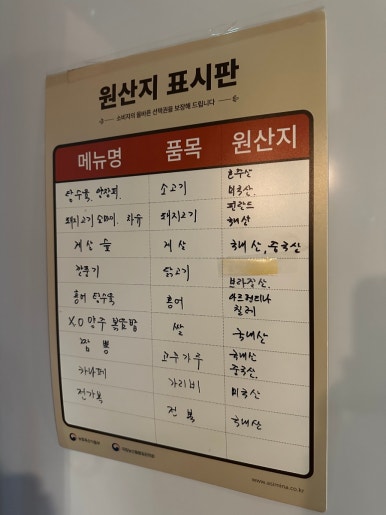 원산지 표시판
소비자의 올바른 선택권을 보장해 드립니다
메뉴명 품목 원산지
탕수육, 양장피, 소고기 호주산
미국산.
돼지고기 쇼마이, 차슈 돼지고기 핀란드
국내산
게살 스프 게살 국내산, 중국산
깐풍기 닭고기
브라질산.
홍어 탕수육 홍어 아르헨티나
칠레
X.O 양주 볶음밥 쌀 국내산
짬뽕 고추가루 국내산
중국산.
가리비 미국산
전가복
전복 국내산
www.asimina.co.kr